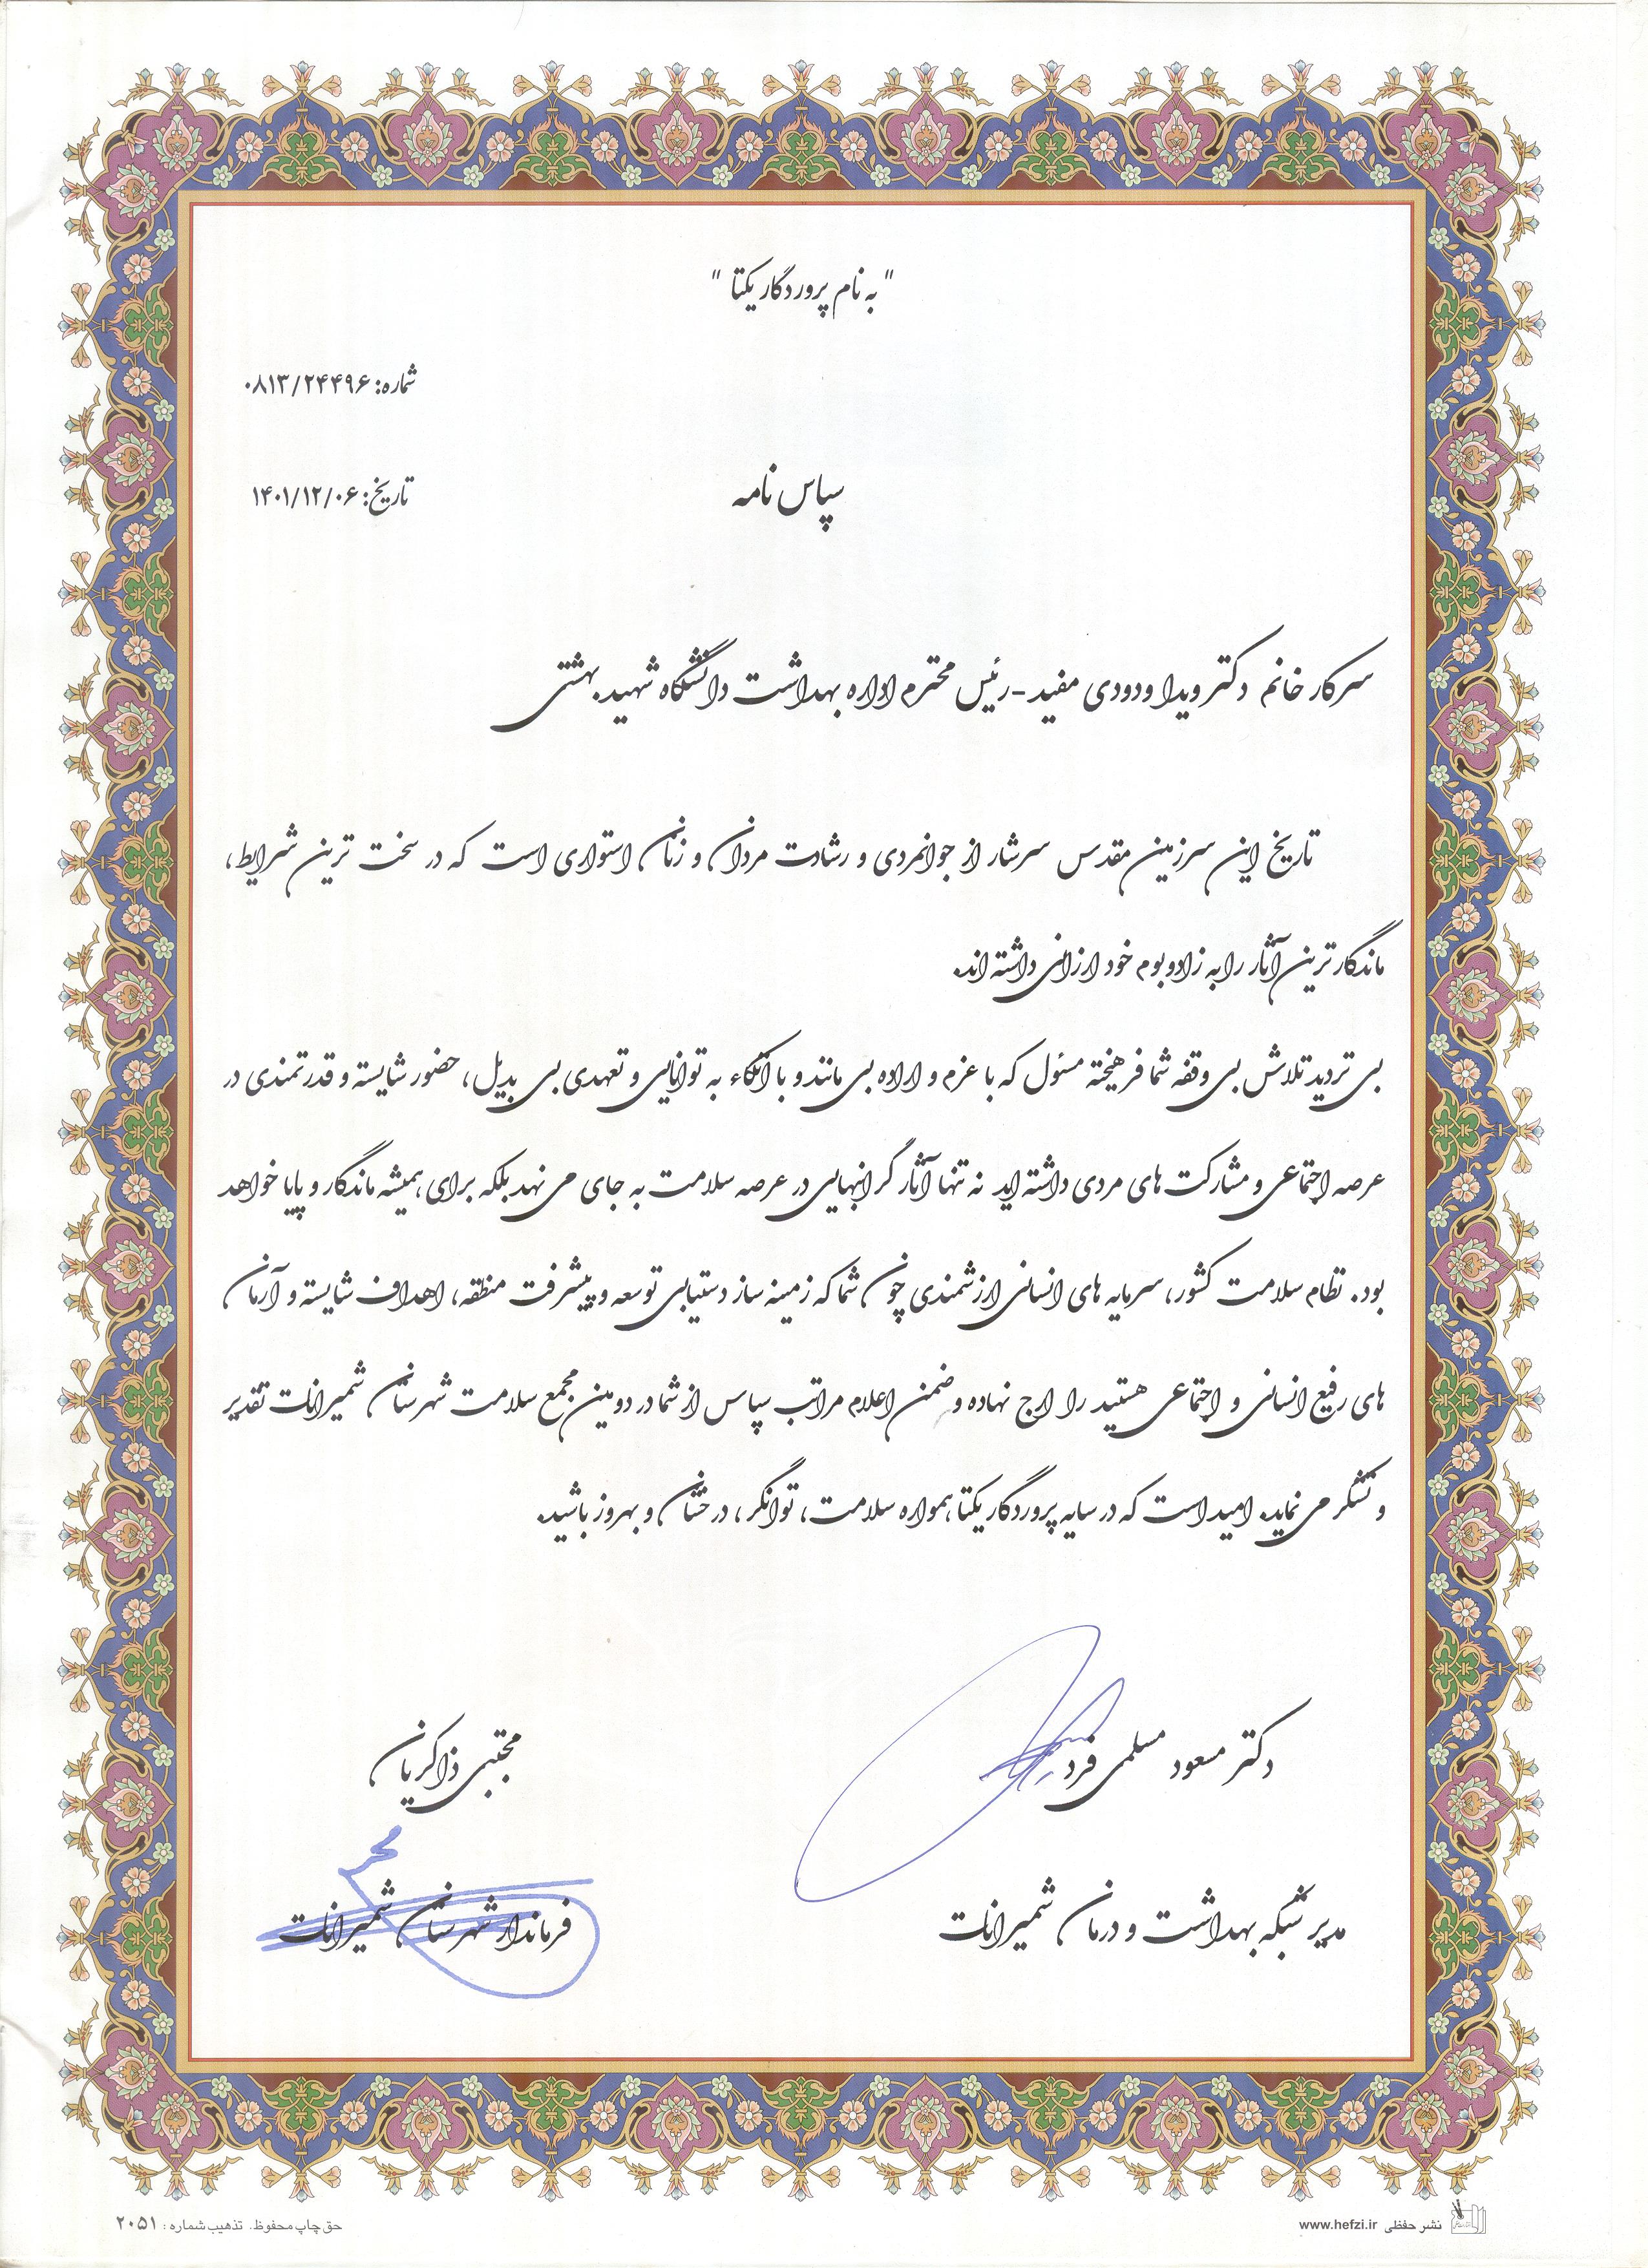 " به نام پروردگار یکتا "
شماره: ۰۸۱۳/۲۴۴۹۶
سپاس نامه
تاریخ: ۱۴۰۱/۱۲/۰۶
سرکار خانم دکتر ویدا ودودی مفید - رئیس محترم اداره بهداشت دانشگاه شهید بهشتی
تاریخ این سرزمین مقدس سرشار از جوانمردی و رشادت مردان و زنان استواری است که در سخت ترین شرایط،
ماندگارترین آثار را به زادوبوم خود ارزانی داشته اند.
بی تردید تلاش بی وقفه شما فرهیخته مسئول که با عزم و اراده بی مانند و با اتکاء به توانایی و تعهدی بی بدیل، حضور شایسته و قدرتمندی در
عرصه اجتماعی و مشارکت های مردی داشته اید نه تنها آثار گرانبهایی در عرصه سلامت به جای می نهد بلکه برای همیشه ماندگار و پایا خواهد
بود. نظام سلامت کشور، سرمایه های انسانی ارزشمندی چون شما که زمینه ساز دستیابی توسعه و پیشرفت منطقه، اهداف شایسته و آرمان
های رفیع انسانی و اجتماعی هستید را ارج نهاده و ضمن اعلام مراتب سپاس از شما در دومین مجمع سلامت شهرستان شمیرانات تقدیر
و تشکر می نماید. امید است که در سایه پروردگار یکتا همواره سلامت، توانگر، درخشان و بهروز باشید.
دکتر مسعود مسلمی فرد
مجتبی ذاکریان
مدیر شبکه بهداشت و درمان شمیرانات
فرماندار شهرستان شمیرانات
نشر حفظی www.hefzi.ir
حق چاپ محفوظ. تذهیب شماره: ۲۰۵۱